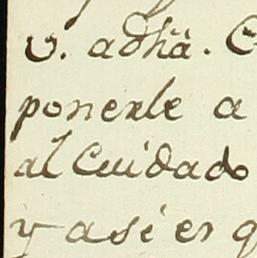 v. adhã. C
ponerle a
al Cuidado
y asi es q